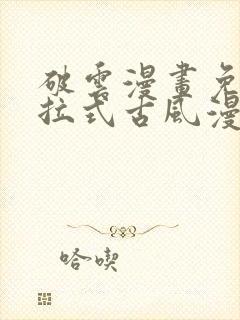 破云漫畫免
拉式古風漫
哈喫